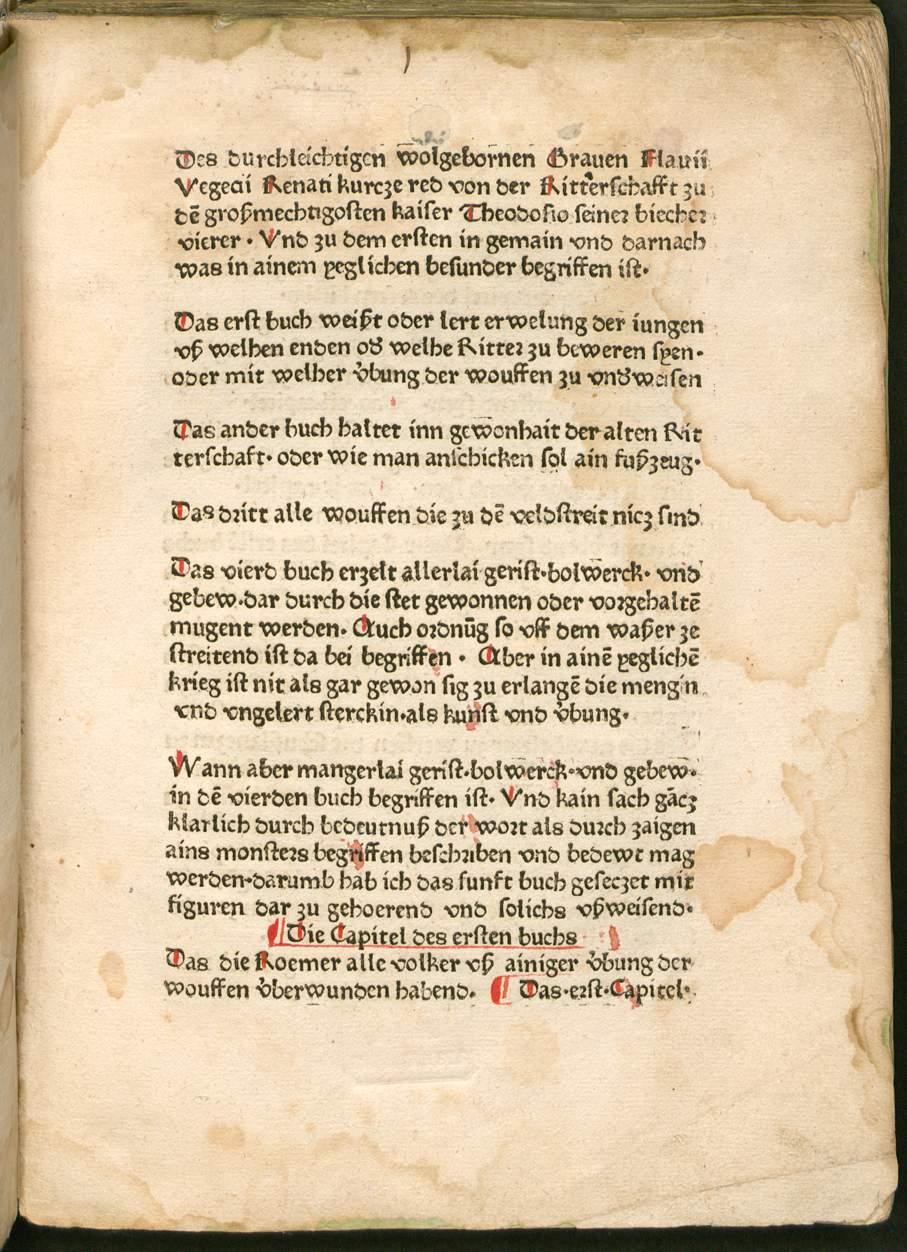 Des durchleichtigen wolgebornen Grauen Flauii
Vegecii Renati kurcze red von der Ritterschafft zu
dē groſzmechtigosten kaiser Theodosio seiner biecher
vierer · Vnd zu dem ersten in gemain vnd darnach
was in ainem yeglichen besunder begriffen ist·
Das erst buch weiſzt oder lert erwelung der iungen
vſz welhen enden od̓ welhe Ritter zu beweren syen·
oder mit welher v̓bung der wouffen zu vnd̓weisen
Das ander buch haltet inn gewonhait der alten Rit
terschaft· oder wie man anschicken sol ain fuſzzeug·
Das dritt alle wouffen die zu dē veldstreit nicz sind
Das vierd buch erzelt allerlai gerist·bolwerck· vnd
gebew·dar durch die stet gewonnen oder vorgehaltē
mugent werden· Auch ordnūg so vff dem waſzer ze
streitend ist da bei begriffen · Aber in ainē yeglichē
krieg ist nit als gar gewon sig zu erlangē die mengin
vnd vngelert sterckin·als kunst vnd v̓bung·
Wann aber mangerlai gerist·bolwerck·vnd gebew·
in dē vierden buch begriffen ist· Vnd kain sach gācz
klarlich durch bedeutnuſz der wort als durch zaigen
ains monsters begriffen beschriben vnd bedewt mag
werden·darumb hab ich das funft buch geseczet mit
figuren dar zu gehoerend vnd solichs vſzweisend·
Die Capitel des ersten buchs
Das die Roemer alle volker vſz ainiger v̓bung der
wouffen v̓berwunden habend· Das·erst·Capitel·